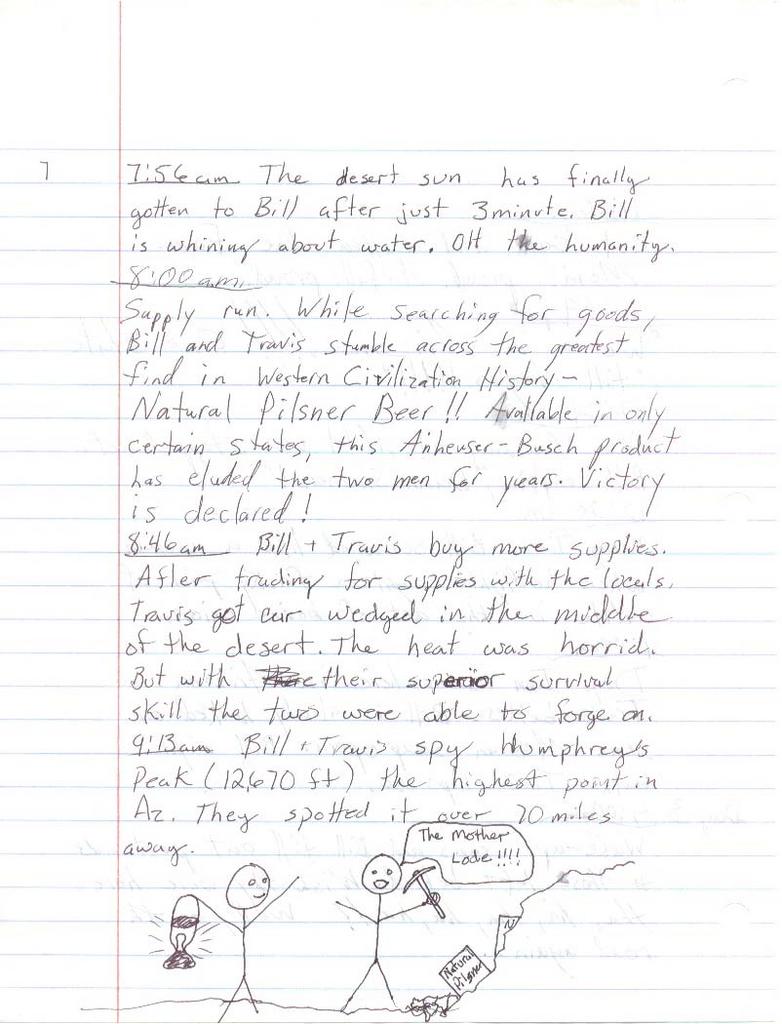 7
7:56am The desert sun has finally
gotten to Bill after just 3minute. Bill
is whining about water. OH the humanity.
8:00am.
Supply run. While searching for goods,
Bill and Travis stumble across the greatest
find in Western Civilization History-
Natural Pilsner Beer!! Available in only
certain states, this Anheuser-Busch product
has eluded the two men for years. Victory
is declared!
8:46am Bill + Travis buy more supplies.
After trading for supplies with the locals,
Travis got car wedged in the middle
of the desert. The heat was horrid.
But with their superior survival
skill the two were able to forge on.
9:13am Bill + Travis spy Humphrey's
Peak (12,670 ft) the highest point in
Az. They spotted it over 70 miles
away.
The Mother
Lode!!!!
N
Natural
Pilsner